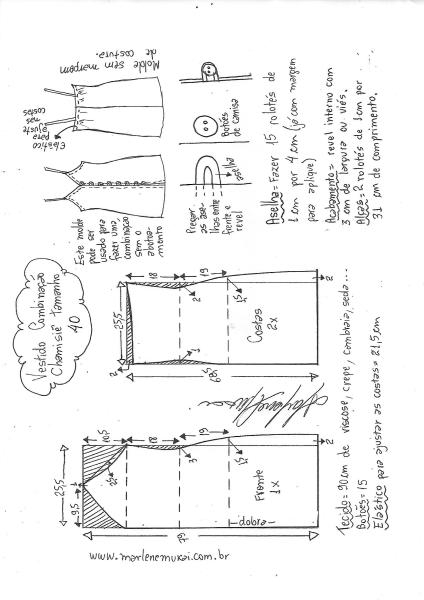 Vestido Combinação
Chemisiê tamanho
40
Este molde
pode ser
usado para
fazer uma
combinação
sem o
abotoa-
mento
Elástico
para
ajuste
nas
costas
Molde sem margem
de costura.
Pregar
as ase-
lhas entre
frente e
revel
aselha
Botões
de camisa
Aselha = Fazer 15 rolotês de
1 cm por 4 cm (já com margem
para aplique)
Acabamento = revel interno com
3 cm de largura ou viés.
Alças = 2 rolotês de 1 cm por
31 cm de comprimento.
www.marlenemukai.com.br
25,5
9,5
1
10,5
18
19
3
1,5
2
79
Frente
1x
dobra
25,5
2
18
19
2
1
1,5
2
68,5
Costas
2x
Tecido = 90 cm de viscose, crepe, cambraia, seda...
Botões = 15
Elástico para ajustar as costas = 21,5 cm